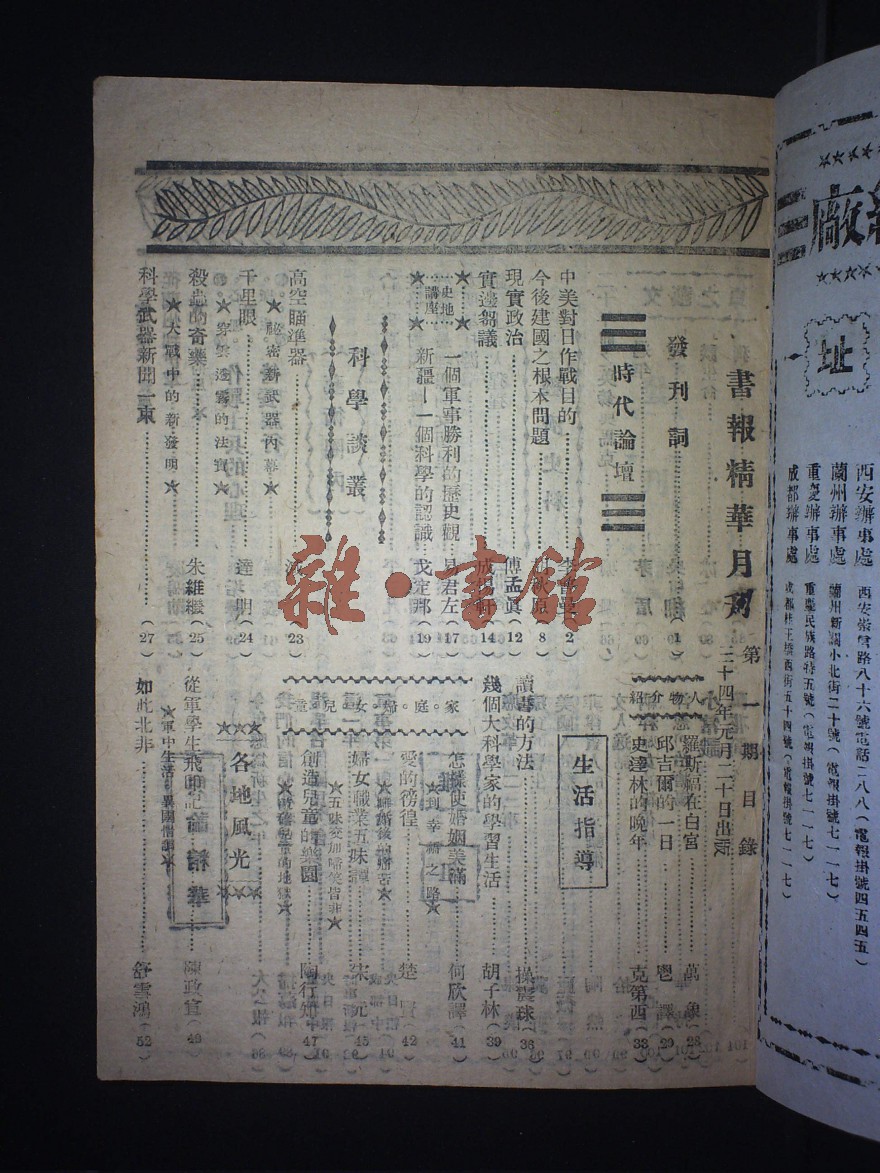 書報精華月刊
第一期目錄
三十四年元月二十日出版
發刊詞(1)
時代論壇
中美對日作戰目的(2)
今後建國之根本問題(8)
現實政治 傅孟眞(12)
實邊芻議(14)
史地講座
一個軍事勝利的歷史觀 易君左(17)
新疆—一個科學的認識 戈定邦(19)
科學談叢
高空瞄準器(23)
★秘密新武器內幕★
千里眼 達明(24)
★穿雲透霧的法寶★
殺蟲的奇藥 朱維繼(25)
★大戰中的新發明★
科學武器新聞一束(27)
人物介紹
羅斯福在白宮 萬象(28)
邱吉爾的一日(29)
史達林的晚年 克第西(33)
生活指導
讀書的方法 操震球(36)
幾個大科學家的學習生活 胡子林(39)
家。庭。婦。女。兒。童
怎樣使婚姻美滿 何欣譯(41)
★到幸福之路★
愛的徬徨(42)
婦女職業五味譚 宋元(45)
★五味交加啼笑皆非★
創造兒童的樂園 陶行知(47)
各地風光
從軍學生飛印記 陳政宣(49)
★軍中生活異國情調★
如此北非 舒雪鴻(52)
廠
址
西安辦事處 西安崇書路八十六號電話二八八(電報掛號四五四五)
蘭州辦事處 蘭州新關小北街二十號(電報掛號七一一七)
重慶辦事處 重慶民族路特五號(電報掛號七一一七)
成都辦事處 成都桂王橋西街五十四號(電報掛號七一一七)
雜·書館